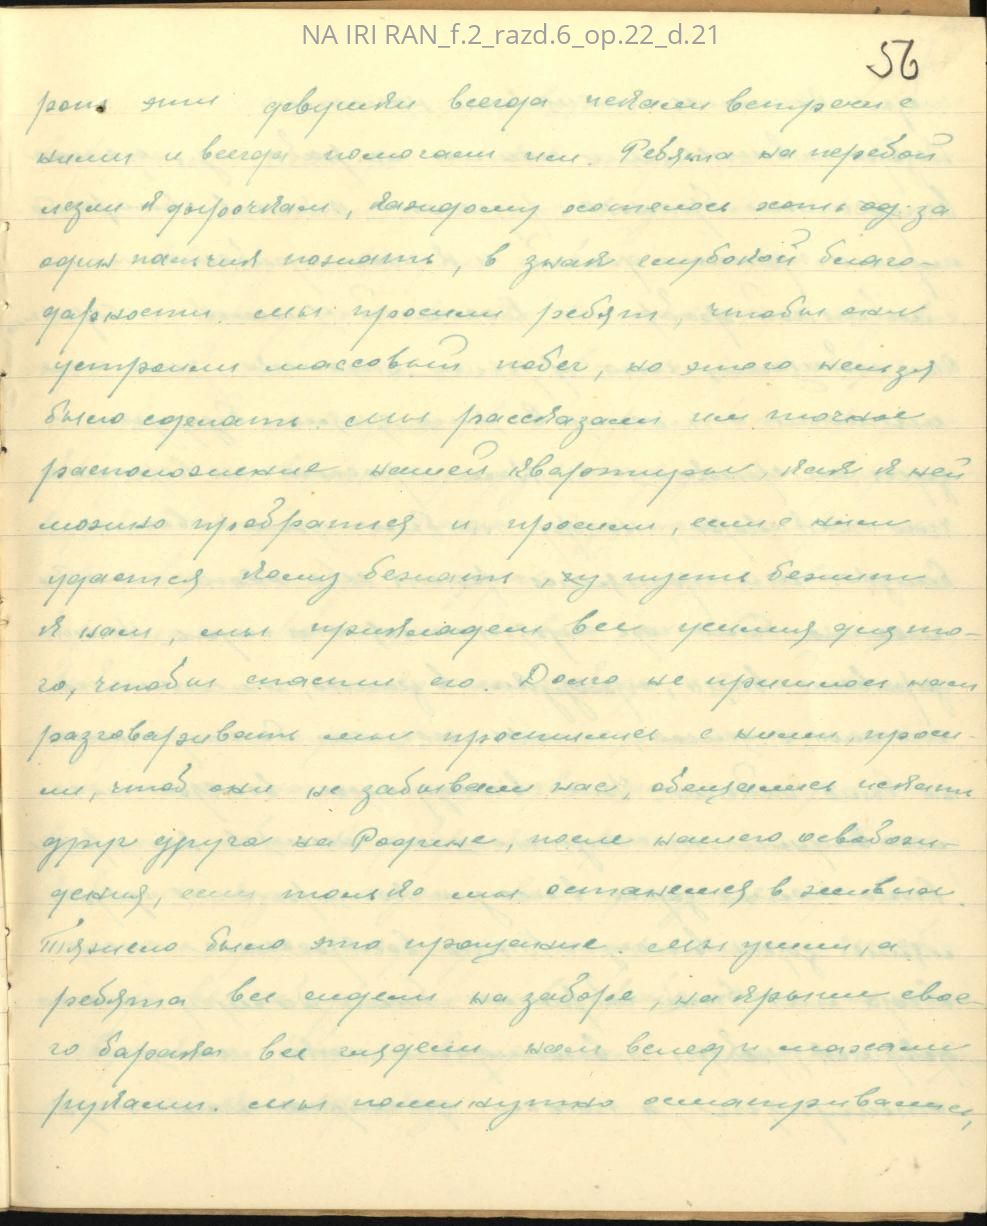 NA IRI RAN_f.2_razd.6_op.22_d.21
56
эти девушки всегда искали встречи с
ними и всегда помогали им. Ребята на перебой
лезли к дырочкам, каждому хотелось хоть за
один пальчик пожать, в знак глубокой благо-
дарности. Мы просили ребят, чтобы они
устроили массовый побег, но этого нельзя
было сделать. Мы рассказали им точное
расположение нашей квартиры, как к ней
можно пробраться и просили, если с ними
удастся кому бежать, пусть бежит
к нам, мы прикладем все усилия для то-
го, чтобы спасти его. Долго не пришлось нам
разговаривать мы простились с ними, проси-
ли, чтоб они не забывали нас, обещались искать
друг друга на Родине, после нашего освобож-
дения, если только мы останемся в живых.
Тяжело было это прощание. Мы ушли, а
ребята все сидели на заборе, на крыши свое-
го барака все глядели нам вслед и махали
руками. Мы поминутно осматривались,